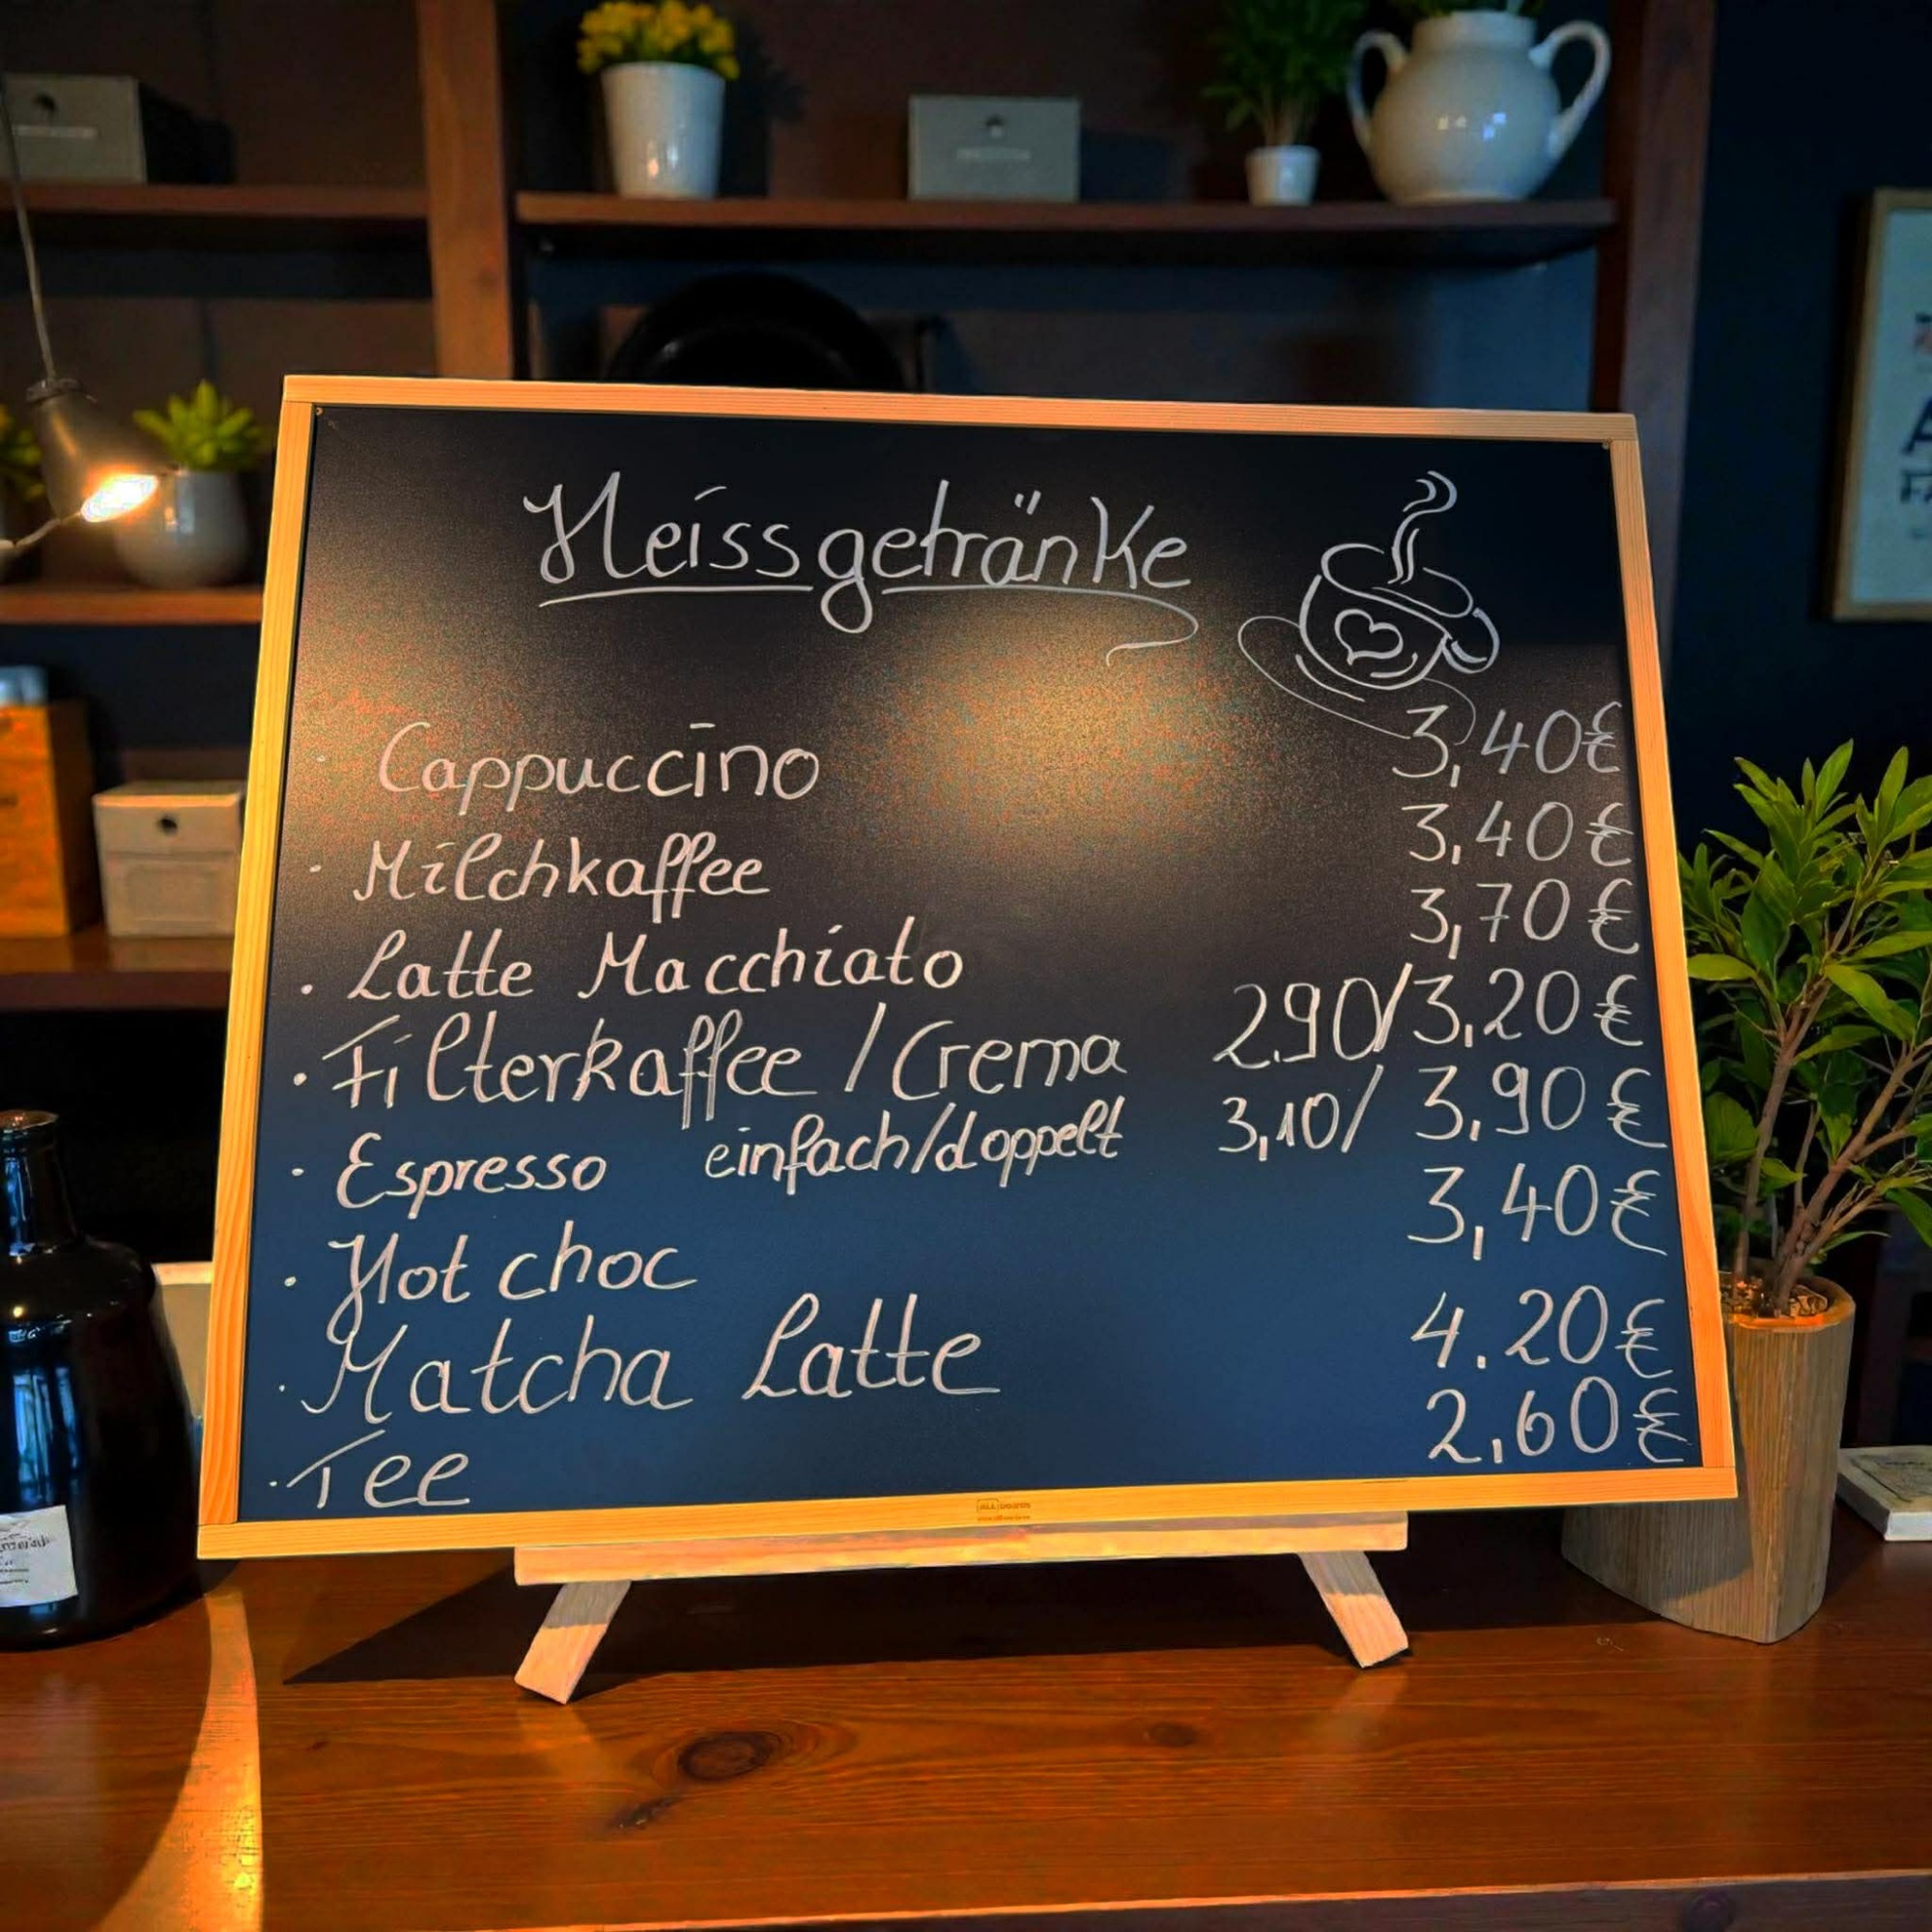 Heissgetränke
· Cappuccino 3,40€
· Milchkaffee 3,40€
· Latte Macchiato 3,70€
· Filterkaffee / Crema 2.90/3,20€
· Espresso einfach/doppelt 3,10/ 3,90€
· Hot choc 3,40€
· Matcha Latte 4.20€
· Tee 2,60€